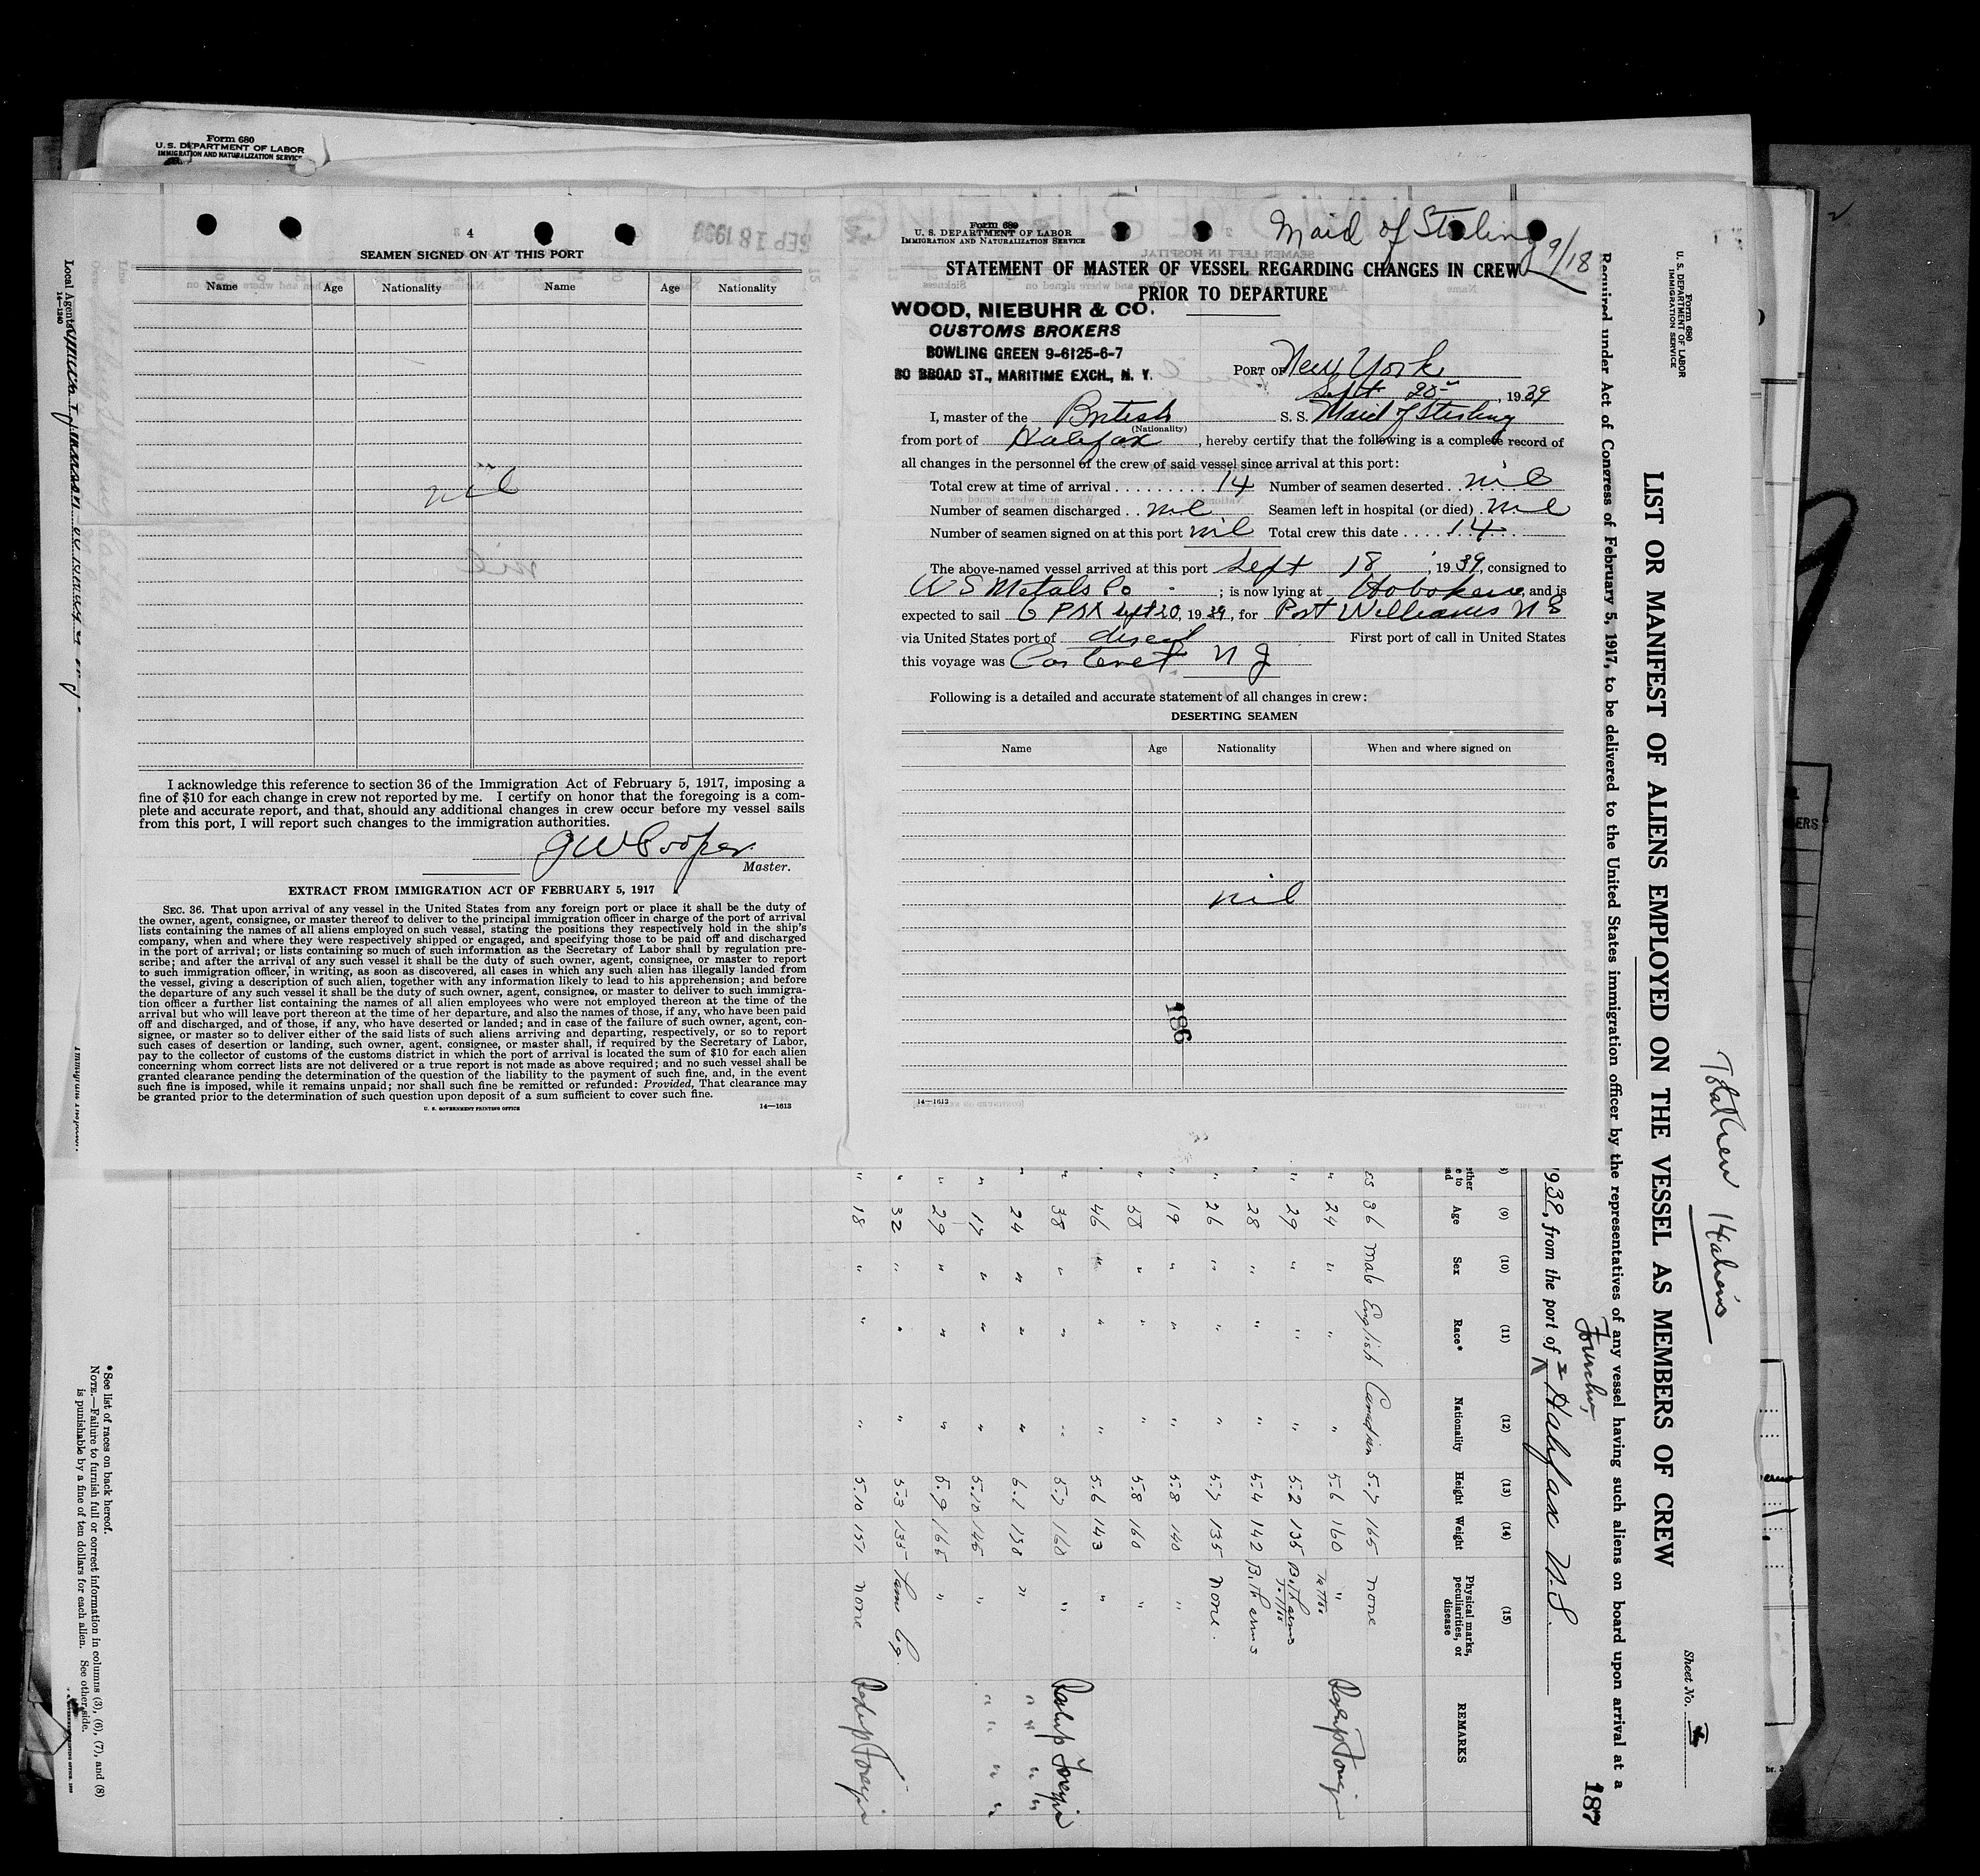 Form 680
U. S. DEPARTMENT OF LABOR
IMMIGRATION AND NATURALIZATION SERVICE
4
SEAMEN SIGNED ON AT THIS PORT
Name Age Nationality Name Age Nationality
nil
I acknowledge this reference to section 36 of the Immigration Act of February 5, 1917, imposing a
fine of $10 for each change in crew not reported by me. I certify on honor that the foregoing is a com-
plete and accurate report, and that, should any additional changes in crew occur before my vessel sails
from this port, I will report such changes to the immigration authorities.
G W Cooper
Master.
EXTRACT FROM IMMIGRATION ACT OF FEBRUARY 5, 1917
SEC. 36. That upon arrival of any vessel in the United States from any foreign port or place it shall be the duty of
the owner, agent, consignee, or master thereof to deliver to the principal immigration officer in charge of the port of arrival
lists containing the names of all aliens employed on such vessel, stating the positions they respectively hold in the ship's
company, when and where they were respectively shipped or engaged, and specifying those to be paid off and discharged
in the port of arrival; or lists containing so much of such information as the Secretary of Labor shall by regulation pre-
scribe; and after the arrival of any such vessel it shall be the duty of such owner, agent, consignee, or master to report
to such immigration officer, in writing, as soon as discovered, all cases in which any such alien has illegally landed from
the vessel, giving a description of such alien, together with any information likely to lead to his apprehension; and before
the departure of any such vessel it shall be the duty of such owner, agent, consignee, or master to deliver to such immigra-
tion officer a further list containing the names of all alien employees who were not employed thereon at the time of the
arrival but who will leave port thereon at the time of her departure, and also the names of those, if any, who have been paid
off and discharged, and of those, if any, who have deserted or landed; and in case of the failure of such owner, agent, con-
signee, or master so to deliver either of the said lists of such aliens arriving and departing, respectively, or so to report
such cases of desertion or landing, such owner, agent, consignee, or master shall, if required by the Secretary of Labor,
pay to the collector of customs of the customs district in which the port of arrival is located the sum of $10 for each alien
concerning whom correct lists are not delivered or a true report is not made as above required; and no such vessel shall be
granted clearance pending the determination of the question of the liability to the payment of such fine, and, in the event
such fine is imposed, while it remains unpaid; nor shall such fine be remitted or refunded: Provided, That clearance may
be granted prior to the determination of such question upon deposit of a sum sufficient to cover such fine.
U. S. GOVERNMENT PRINTING OFFICE 14—1613
Form 689
U. S. DEPARTMENT OF LABOR
IMMIGRATION AND NATURALIZATION SERVICE
Maid of Stirling 9/18
STATEMENT OF MASTER OF VESSEL REGARDING CHANGES IN CREW
PRIOR TO DEPARTURE
WOOD, NIEBUHR & CO.
CUSTOMS BROKERS
BOWLING GREEN 9-6125-6-7
80 BROAD ST., MARITIME EXCH., N. Y.
PORT OF New York
Sept 20, 1939
I, master of the British S. S. Maid of Sterling
(Nationality)
from port of Halifax, hereby certify that the following is a complete record of
all changes in the personnel of the crew of said vessel since arrival at this port:
Total crew at time of arrival 14 Number of seamen deserted nil
Number of seamen discharged nil Seamen left in hospital (or died) nil
Number of seamen signed on at this port nil Total crew this date 14
The above-named vessel arrived at this port Sept 18, 1939, consigned to
U S Metals Co; is now lying at Hoboken, and is
expected to sail 6 PM Sept 20, 1939, for Port Williams N S
via United States port of direct First port of call in United States
this voyage was Carteret N J
Following is a detailed and accurate statement of all changes in crew:
DESERTING SEAMEN
Name Age Nationality When and where signed on
nil
186
14—1613
Form 680
U. S. DEPARTMENT OF LABOR
IMMIGRATION SERVICE
Total crew 14 aliens
Sheet No.
LIST OR MANIFEST OF ALIENS EMPLOYED ON THE VESSEL AS MEMBERS OF CREW
Required under Act of Congress of February 5, 1917, to be delivered to the United States immigration officer by the representatives of any vessel having such aliens on board upon arrival at a
187
1939, from the port of Halifax N.S.
(9) (10) (11) (12) (13) (14) (15)
Age Sex Race* Nationality Height Weight Physical marks, peculiarities, or disease REMARKS
36 male English Canadian 5.7 165 none
" 24 " " " 5.6 160 "
" 29 " " " 5.2 135 Both arms
" 28 " " " 5.4 142 Both arms
" 26 " " " 5.7 135 none.
" 19 " " " 5.8 140 "
" 58 " " " 5.8 160 "
" 46 " " " 5.6 143 "
" 38 " " " 5.7 160 "
" 24 " " " 6.1 158 "
" 17 " " " 5.10 145 "
" 29 " " " 5.9 165 "
" 32 " " " 5.3 135
" 18 " " " 5.10 151 none
*See list of races on back hereof.
NOTE.—Failure to furnish full or correct information in columns (3), (6), (7), and (8)
is punishable by a fine of ten dollars for each alien. See other side.
Local Agents
14—1240